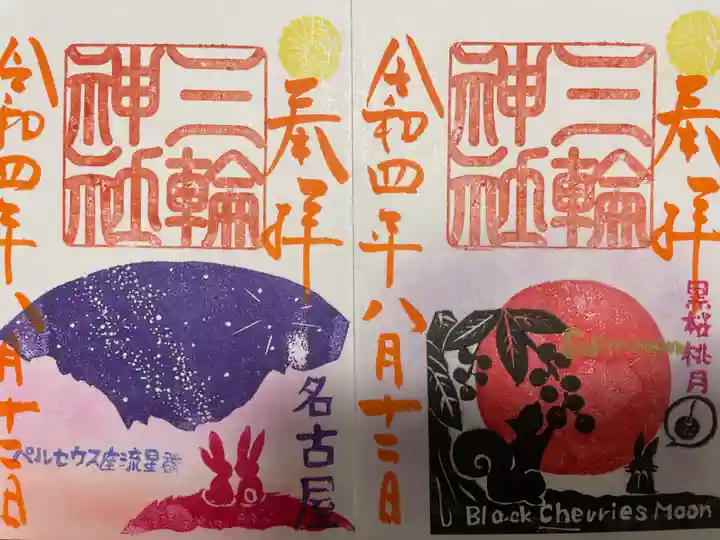 奉拝
三輪
神社
名古屋
ペルセウス座流星群
令和四年八月十二日
奉拝
三輪
神社
黒桜桃月
令和四年八月十二日
Black Cherries Moon